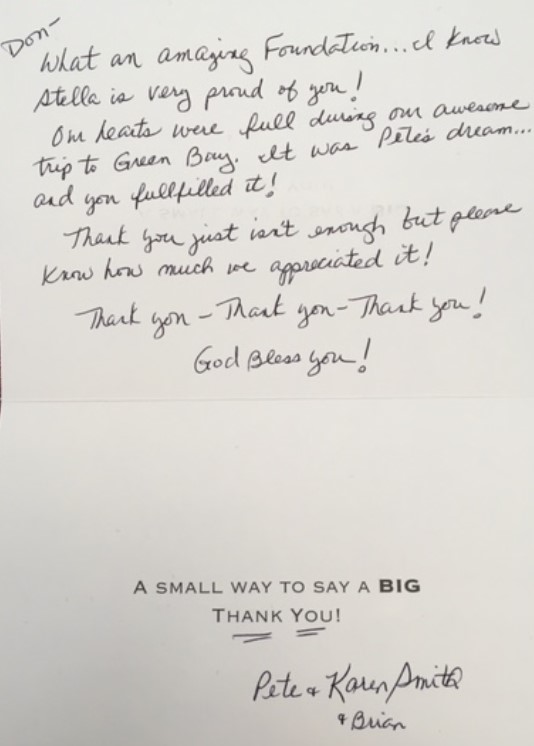 Don-
What an amazing Foundation...I know
Stella is very proud of you!
Our hearts were full during our awesome
trip to Green Bay. It was Pete's dream...
and you fullfilled it!
Thank you just isn't enough but please
know how much we appreciated it!
Thank you - Thank you - Thank you!
God Bless you!
A SMALL WAY TO SAY A BIG
THANK YOU!
Pete & Karen Smith
& Brian